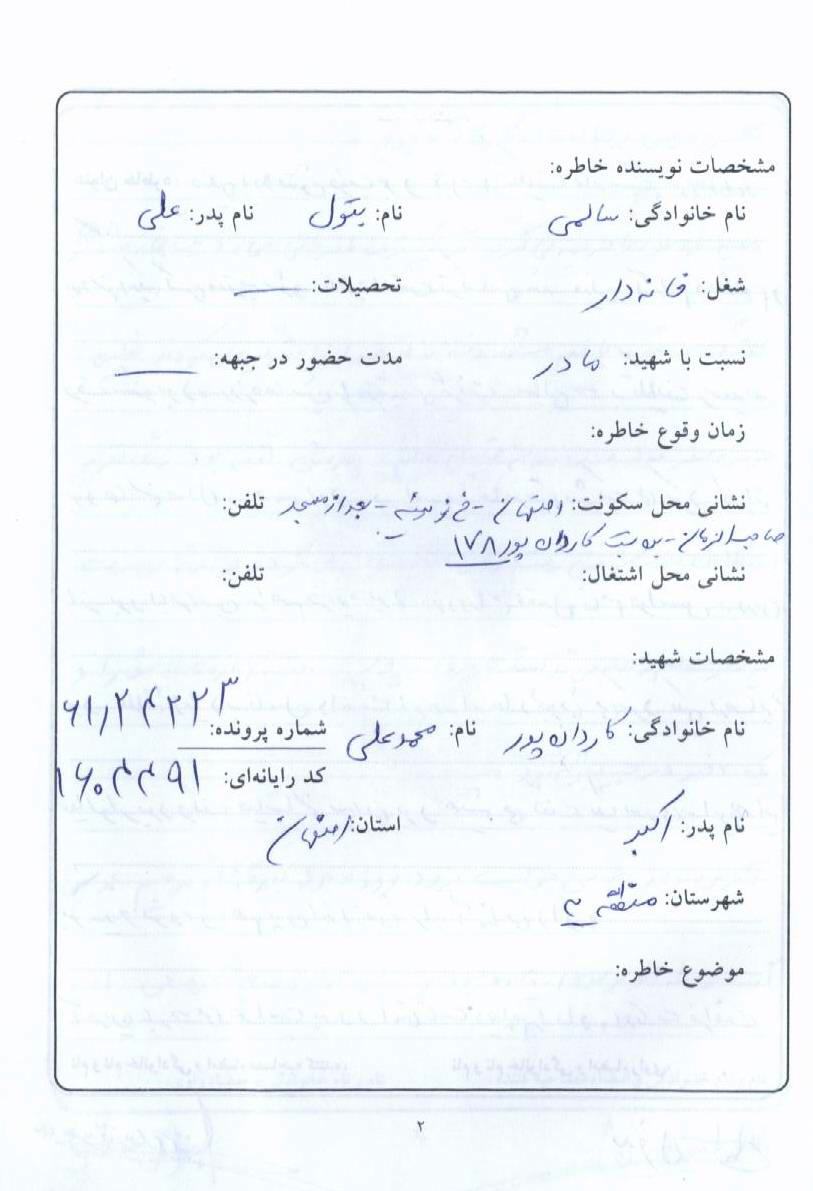 مشخصات نویسنده خاطره:
نام خانوادگی: سالمی نام: بتول نام پدر: علی
شغل: خانه دار تحصیلات: ــ
نسبت با شهید: مادر مدت حضور در جبهه: ــــ
زمان وقوع خاطره:
نشانی محل سکونت: اصفهان - خ - بعد از مسجد تلفن:
صاحب الزمان - بن بست کاردان پور ۱۷۸
نشانی محل اشتغال: تلفن:
مشخصات شهید:
نام خانوادگی: کاردان پور نام: محمدعلی شماره پرونده: ۶۱/۲۴۲۲۳
کد رایانه‌ای: ۱۶۰۴۴۹۱
نام پدر: اکبر استان: اصفهان
شهرستان: منطقه ۳
موضوع خاطره:
۲